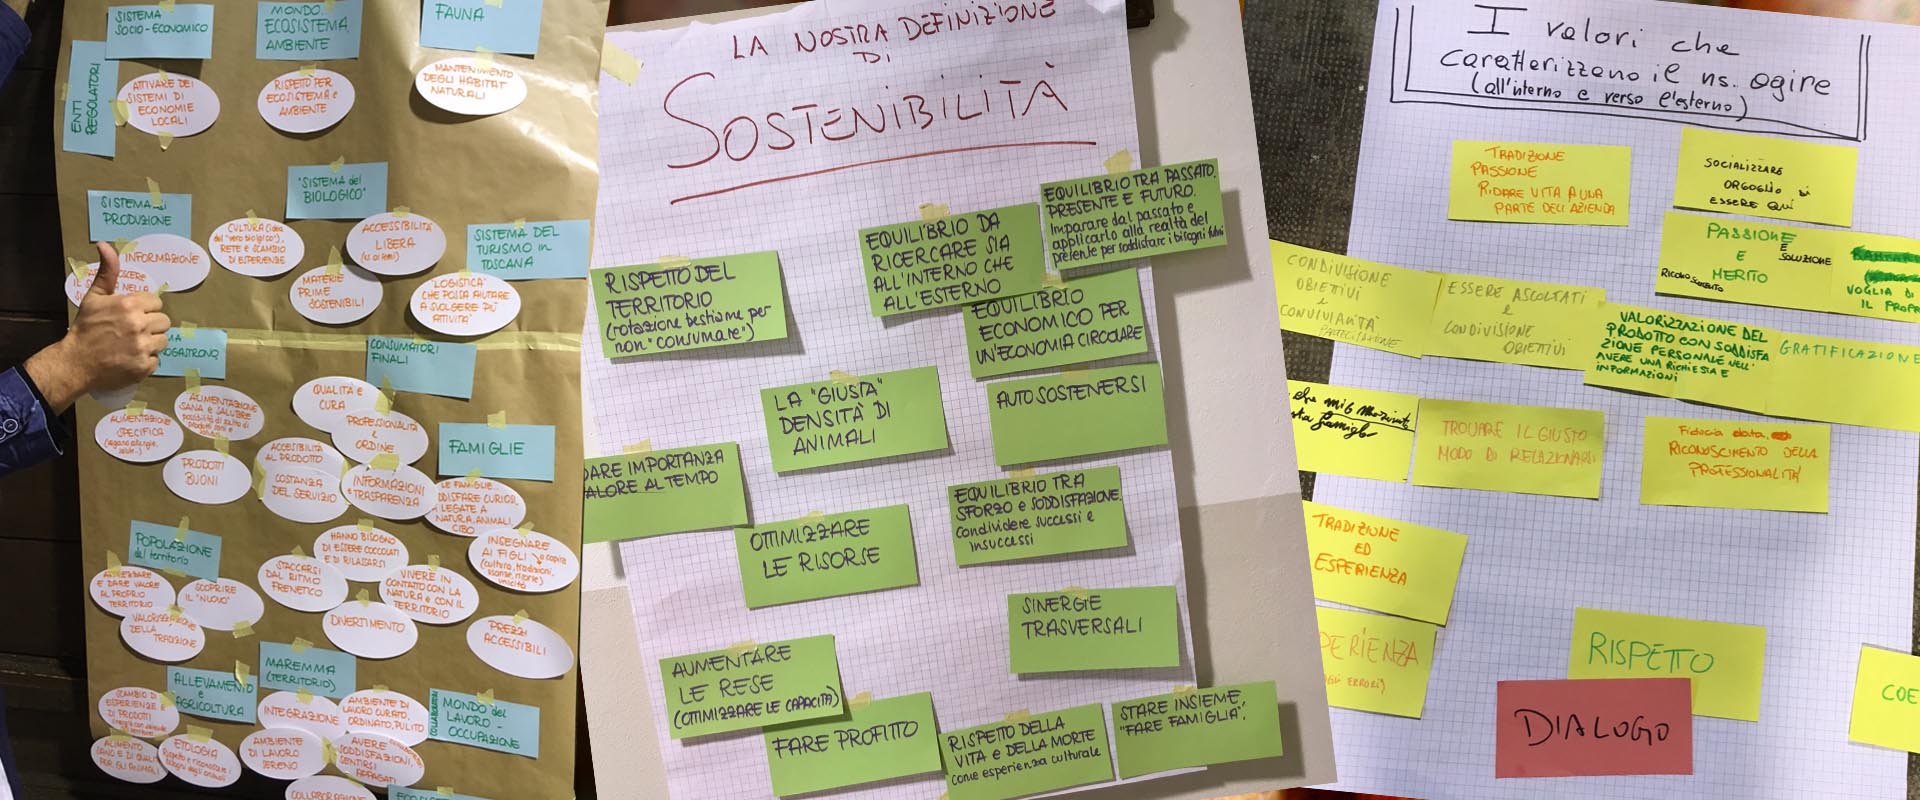 SISTEMA
SOCIO-ECONOMICO
MONDO
ECOSISTEMA
AMBIENTE
FAUNA
ENTI
REGOLATORI
ATTIVARE DEI
SISTEMI DI
ECONOMIE
LOCALI
RISPETTO PER
ECOSISTEMA e
AMBIENTE
MANTENIMENTO
DEGLI HABITAT
NATURALI
SISTEMA
PRODUZIONE
"SISTEMA del
BIOLOGICO"
SISTEMA DEL
TURISMO in
TOSCANA
INFORMAZIONE
CULTURA (idea
del "vero biologico"),
RETE e SCAMBIO
DI ESPERIENZE
ACCESSIBILITÀ
LIBERA
MATERIE
PRIME
SOSTENIBILI
"LOGISTICA"
CHE POSSA AIUTARE
A SVOLGERE PIÙ
ATTIVITÀ
CONSUMATORI
FINALI
FAMIGLIE
QUALITÀ e
CURA
PROFESSIONALITÀ
e
ORDINE
ALIMENTAZIONE
SANA e SALUBRE
ALIMENTAZIONE
SPECIFICA
PRODOTTI
BUONI
ACCESSIBILITÀ
AL PRODOTTO
COSTANZA
DEL SERVIZIO
INFORMAZIONI
e TRASPARENZA
LE FAMIGLIE
LEGATE A
NATURA, ANIMALI,
CIBO
POPOLAZIONE
del territorio
HANNO BISOGNO
DI ESSERE COCCOLATI
E DI RILASSARSI
INSEGNARE
AI FIGLI
STACCARSI
DAL RITMO
FRENETICO
VIVERE IN
CONTATTO CON LA
NATURA e CON IL
TERRITORIO
E DARE VALORE
AL PROPRIO
TERRITORIO
SCOPRIRE
IL "NUOVO"
VALORIZZAZIONE
DELLA
TRADIZIONE
DIVERTIMENTO
PREZZI
ACCESSIBILI
MAREMMA
(TERRITORIO)
ALLEVAMENTO
e
AGRICOLTURA
MONDO del
LAVORO -
OCCUPAZIONE
SCAMBIO DI
ESPERIENZE e
DI PRODOTTI
INTEGRAZIONE
AMBIENTE DI
LAVORO CURATO,
ORDINATO, PULITO
AMBIENTE
DI LAVORO
SERENO
AVERE
SODDISFAZIONI,
SENTIRSI
APPAGATI
ETOLOGIA
COLLABORAZIONE
LA NOSTRA DEFINIZIONE
DI
SOSTENIBILITÀ
EQUILIBRIO TRA PASSATO,
PRESENTE E FUTURO.
Imparare dal passato e
applicarlo alla realtà del
presente per soddisfare i bisogni futuri
EQUILIBRIO DA
RICERCARE SIA
ALL'INTERNO CHE
ALL'ESTERNO
RISPETTO DEL
TERRITORIO
(rotazione bestiame per
non "consumare")
EQUILIBRIO
ECONOMICO PER
UN'ECONOMIA CIRCOLARE
LA "GIUSTA"
DENSITÀ DI
ANIMALI
AUTOSOSTENERSI
DARE IMPORTANZA
VALORE AL TEMPO
EQUILIBRIO TRA
SFORZO e SODDISFAZIONE.
Condividere successi e
insuccessi
OTTIMIZZARE
LE RISORSE
SINERGIE
TRASVERSALI
AUMENTARE
LE RESE
(OTTIMIZZARE LE CAPACITÀ)
FARE PROFITTO
RISPETTO DELLA
VITA e DELLA MORTE
come esperienza culturale
STARE INSIEME,
"FARE FAMIGLIA".
I valori che
caratterizzano il ns. agire
(all'interno e verso l'esterno)
TRADIZIONE
PASSIONE
RIDARE VITA A UNA
PARTE DELL'AZIENDA
SOCIALIZZARE
ORGOGLIO di
ESSERE QUI
PASSIONE
E
MERITO
E
SOLUZIONE
VOGLIA DI
CONDIVISIONE
OBIETTIVI
e
CONVIVIALITÀ
PARTECIPAZIONE
ESSERE ASCOLTATI
e
CONDIVISIONE
OBIETTIVI
VALORIZZAZIONE DEL
PRODOTTO CON SODDISFA
ZIONE PERSONALE NELL'
AVERE UNA RICHIESTA E
INFORMAZIONI
GRATIFICAZIONE
TROVARE IL GIUSTO
MODO DI RELAZIONARSI
Fiducia data,
RICONOSCIMENTO DELLA
PROFESSIONALITÀ
TRADIZIONE
ED
ESPERIENZA
RISPETTO
DIALOGO
COE